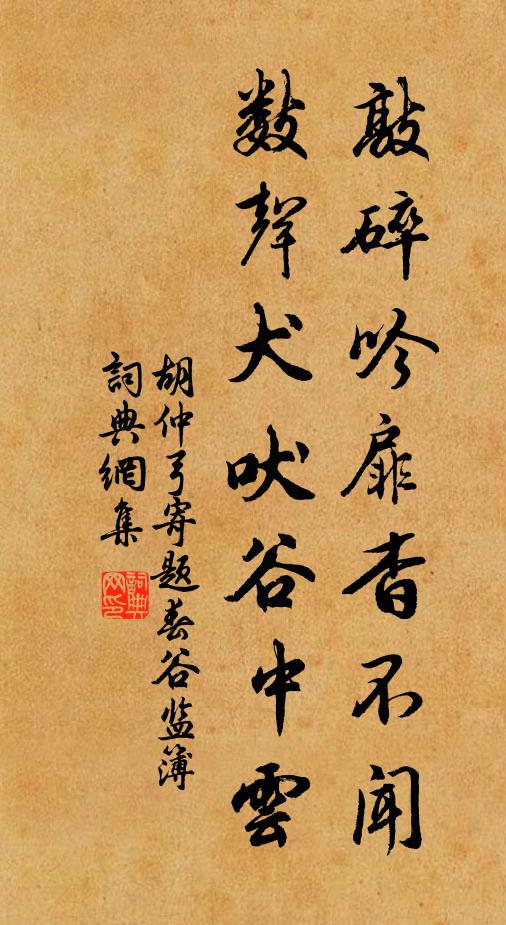 敲碎吟扉杳不闻
数聲犬吠谷中雲
胡仲弓寄题春谷监簿
詞典網集
詞典网印